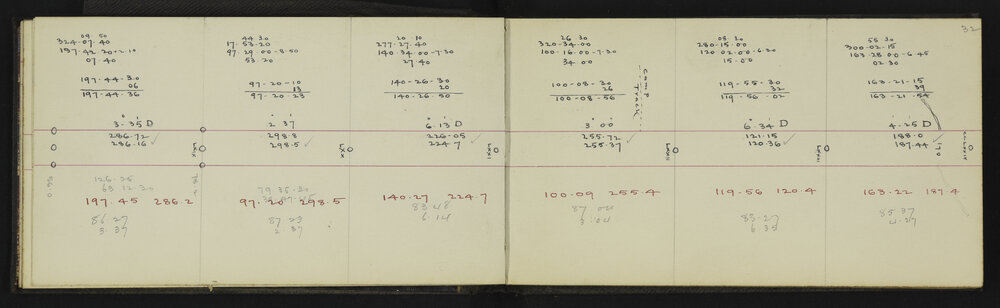 32
09 50
324.07.40
197.42.20-2.10
07.40
197.44.30
06
197.44.36
3.35 D
286.72
286.16
126.25
63.12.30
197.45 286.2
86.27
3.37
44 30
17.53.20
97.29.00-8.50
53.20
97-20-10
13
97-20 23
2 37
298.8
298.5
79.35.30
97.20 298.5
87.23
2.37
20 10
277.27.40
140.34.00-7.30
27.40
140-26-30
20
140-26-50
6.13 D
226.05
224.7
140.27 224.7
83.48
6.14
26 30
320-34.00
100-16.00-7.30
34 00
100-08-30
26
100-08-56
Camp Track
3 00
255.72
255.37
100-09 255.4
87.00
3.04
05 30
280-15.00
120-02.00-6.30
15.00
119-55-30
32
119-56-02
6 34 D
121.15
120.36
119.56 120.4
83.27
6.35
55 30
300-02.15
163-28 00-6.45
02 30
163-21-15
39
163-21-54
4.25 D
188.0
187.44
163.22 187.4
85.37
4.27